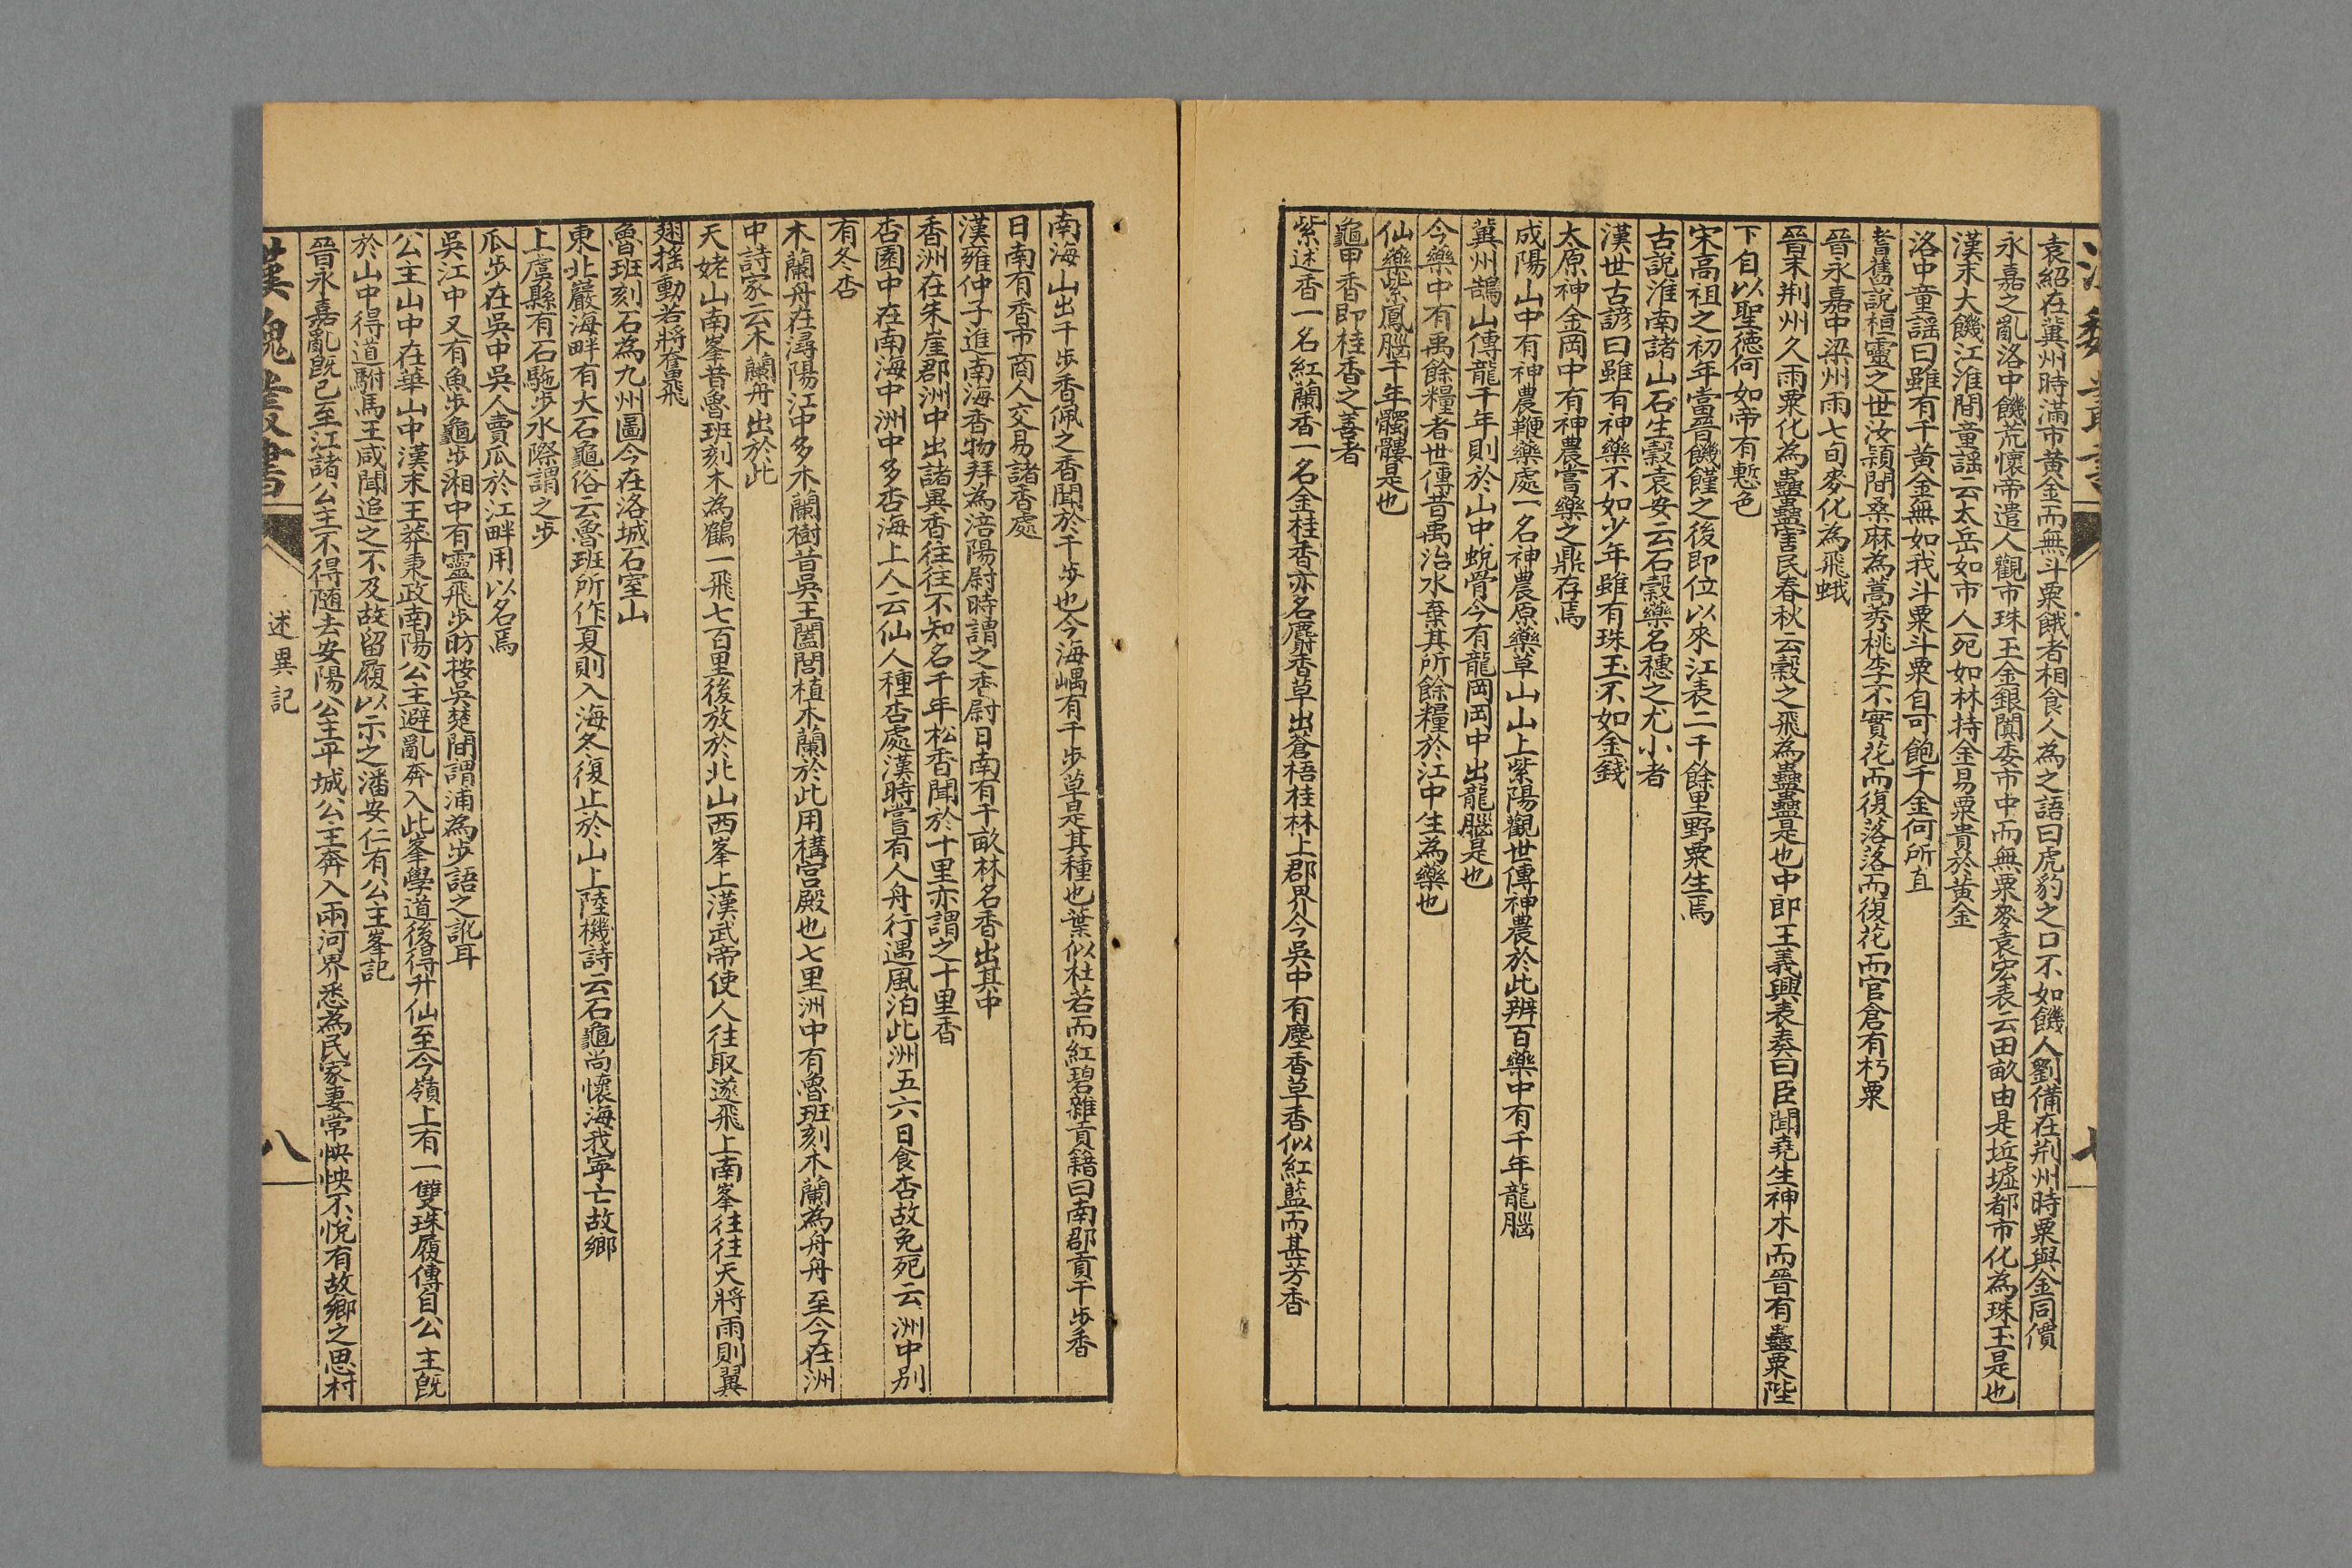 漢魏叢書
七
袁紹在冀州時滿市黃金而無斗粟餓者相食人為之語曰虎豹之口不如饑人劉備在荆州時粟與金同價
永嘉之亂洛中饑荒懷帝遣人觀市珠玉金銀闐委市中而無粟麥袁宏表云田畝由是坵墟都市化為珠玉是也
漢末大饑江淮間童謡云太岳如市人死如林持金易粟貴於黃金
洛中童謡曰雖有千黃金無如我斗粟斗粟自可飽千金何所直
耆舊說桓靈之世汝潁間桑麻為蒿莠桃李不實花而復落落而復花而官倉有朽粟
晉永嘉中梁州雨七旬麥化為飛蛾
晉末荆州久雨粟化為蠱蟲害民春秋云穀之飛為蠱蟲是也中郎王義興表奏曰臣聞堯生神木而晉有蠱粟陛
下自以聖德何如帝有慙色
宋高祖之初年當晉饑饉之後即位以來江表二千餘里野粟生焉
古說淮南諸山石生穀袁安云石穀藥名穗之尤小者
漢世古諺曰雖有神藥不如少年雖有珠玉不如金錢
太原神金岡中有神農嘗藥之鼎存焉
成陽山中有神農鞭藥處一名神農原藥草山山上紫陽觀世傳神農於此辨百藥中有千年龍腦
冀州鵠山傳龍千年則於山中蛻骨今有龍岡岡中出龍腦是也
今藥中有禹餘糧者世傳昔禹治水棄其所餘糧於江中生為藥也
仙藥紫鳳腦千年髑髏是也
龜甲香即桂香之善者
紫述香一名紅蘭香一名金桂香亦名麝香草出蒼梧桂林上郡界今吳中有麈香草香似紅藍而甚芳香
南海山出千步香佩之香聞於千步也今海嵎有千步草是其種也葉似杜若而紅碧雜貢籍曰南郡貢千步香
日南有香市商人交易諸香處
漢雍仲子進南海香物拜為涪陽尉時謂之香尉日南有千畝林名香出其中
香洲在朱崖郡洲中出諸異香往往不知名千年松香聞於十里亦謂之十里香
杏園中在南海中洲中多杏海上人云仙人種杏處漢時嘗有人舟行遇風泊此洲五六日食杏故免死云洲中别
有冬杏
木蘭舟在潯陽江中多木蘭樹昔吳王闔閭植木蘭於此用構宮殿也七里洲中有魯班刻木蘭為舟舟至今在洲
中詩家云木蘭舟出於此
天姥山南峯昔魯班刻木為鶴一飛七百里後放於北山西峯上漢武帝使人往取遂飛上南峯往往天將雨則翼
翅搖動若將奮飛
魯班刻石為九州圖今在洛城石室山
東北巖海畔有大石龜俗云魯班所作夏則入海冬復止於山上陸機詩云石龜尚懷海我寧亡故鄉
上虞縣有石駞步水際謂之步
瓜步在吳中吳人賣瓜於江畔用以名焉
吳江中又有魚步龜步湘中有靈飛步昉按吳楚間謂浦為步語之訛耳
公主山中在華山中漢末王莽秉政南陽公主避亂奔入此峯學道後得升仙至今嶺上有一雙珠履傳自公主旣
於山中得道駙馬王咸聞追之不及故留履以示之潘安仁有公主峯記
晉永嘉亂旣已至江諸公主不得隨去安陽公主平城公主奔入兩河界悉為民家妻常怏怏不悅有故鄉之思村
漢魏叢書
述異記
八